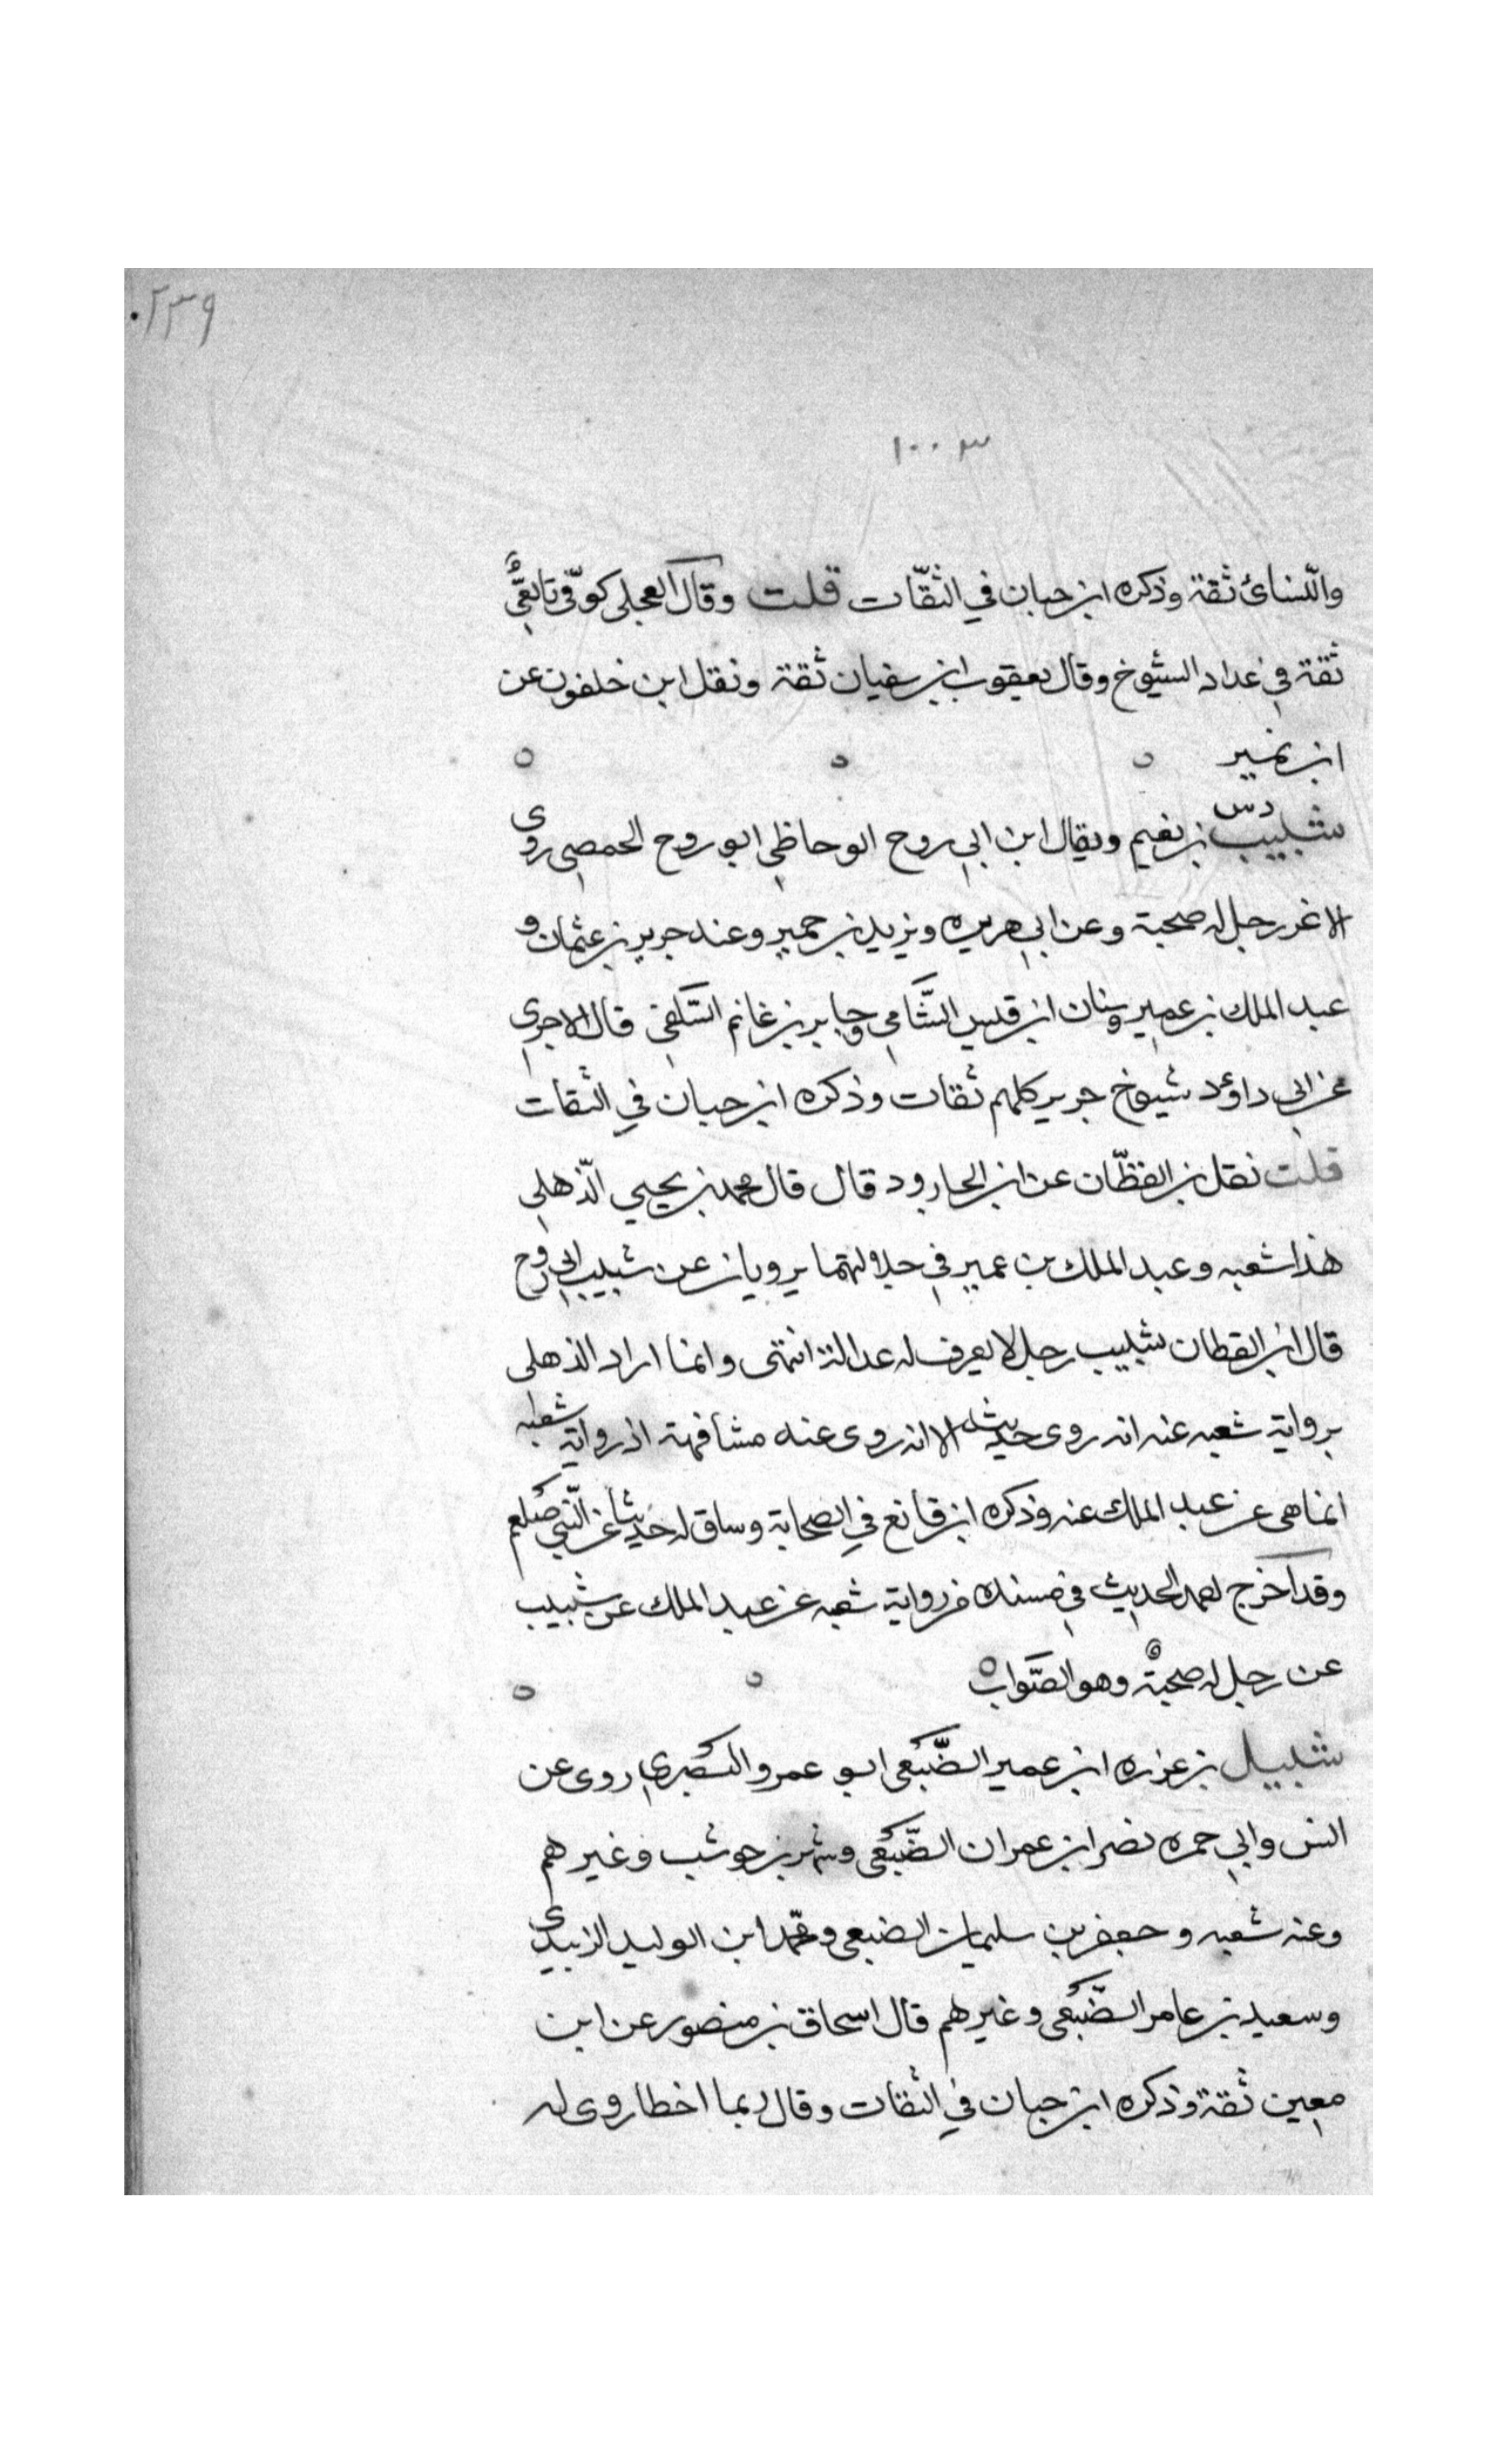 ٢٣٩
١٠٠٣
والنسائ ثقة وذكره ابن حبان في الثقات قلت وقال العجلي كوفي تابعي
ثقة في عداد الشيوخ وقال يعقوب ابن سفيان ثقة ونقل ابن خلفون عن
ابن نمير
دس
شبيب بن نعيم ويقال ابن ابي روح الوحاظي ابو روح الحمصي روى
الاغر رجل له صحبة وعن ابي هريره ويزيد بن حمير وعنه جرير بن عثمان و
عبد الملك بن عمير وسنان ابن قيس الشامي وجابر بن غانم السلفي قال الاجري
عن ابي داؤد شيوخ جرير كلهم ثقات وذكره ابن حبان في الثقات
قلت نقل بن القظان عن ابن الجارود قال قال محمد بن يحيي الذهلي
هذا شعبه وعبد الملك بن عمير في جلالتهما يرويان عن شبيب ابي روح
قال ابن القطان شبيب رجل لا يعرف له عدالة انتهى وانما اراد الذهلي
برواية شعبه عنه انه روى حديثه لا انه روى عنه مشافهة اذ رواية شعبه
انما هي عن عبد الملك عنه وذكره ابن قانع في الصحابة وساق له حديثا عن النبي صلعم
وقد اخرج احمد الحديث في مسنده من رواية شعبه عن عبد الملك عن شبيب
عن رجل له صحبة وهو الصواب
شبيل بن عزره ابن عمير الضبعي ابو عمرو البصري روى عن
انس وابي حمره نصر ابن عمران الضبعي وشهر بن حوشب وغيرهم
وعنه شعبه وجعفر بن سليمان الضبعي ومحمد ابن الوليد الزبيدي
وسعيد بن عامر الضبعي وغيرهم قال اسحاق بن منصور عن ابن
معين ثقة وذكره ابن حبان في الثقات وقال ربما اخطا روى له